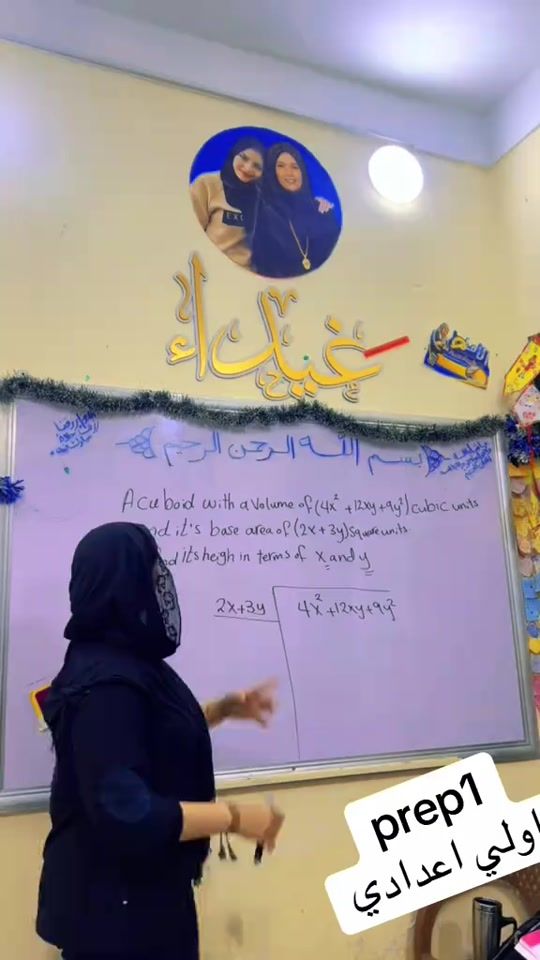 EXC
غيداء
بسم الله الرحمن الرحيم
A cuboid with a volume of (4x² + 12xy + 9y²) cubic units
nd it's base area of (2x + 3y) square units.
d its heigh in terms of x and y
2x+3y
4x² + 12xy + 9y²
prep1
اولي اعدادي